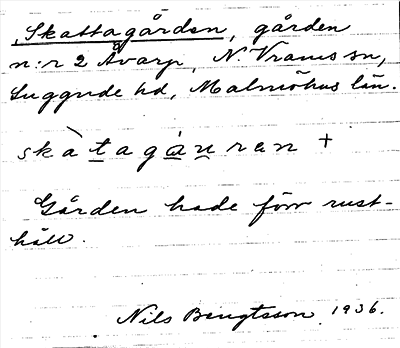 Skattagården, gården
n:r 2 Åvarp, N. Vrams sn,
Luggude hd, Malmöhus län.
skàtagáuran +
Gården hade förr rust-
håll.
Nils Bengtsson 1936.